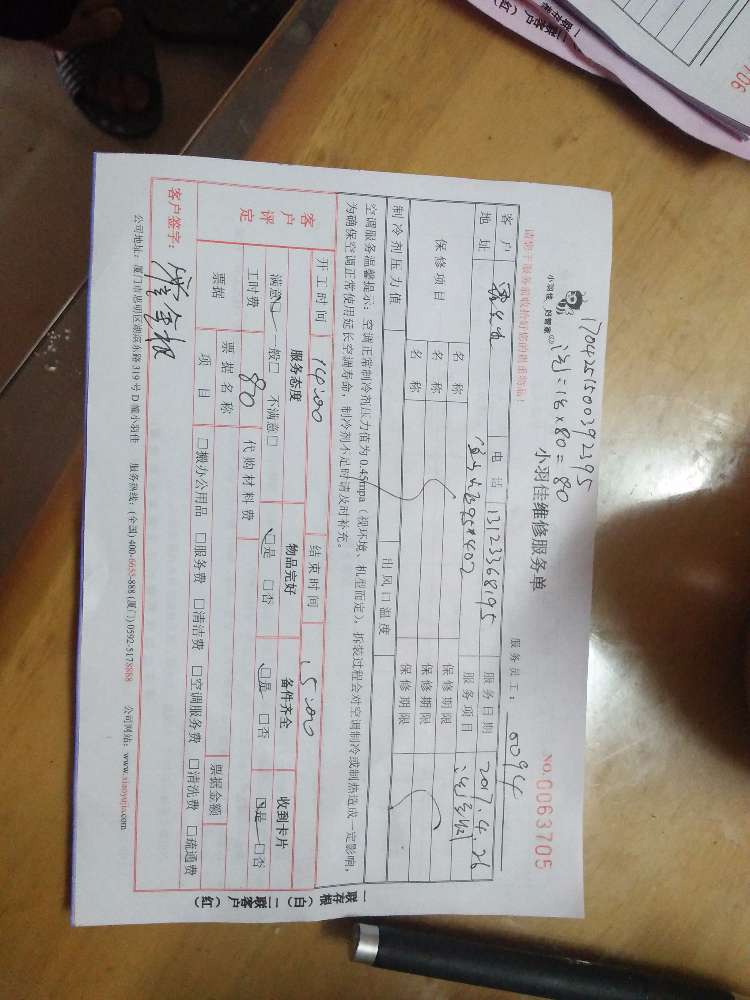 1704251500392395
洗=1台×80=80
小羽佳 好管家
小羽佳维修服务单
NO.0063705
请您于服务前收拾好您的贵重物品!
服务员工: 0094
客户 电话 13123368195 服务日期 2017.4.26
地址 395#402 服务项目
保修项目 名称 保修期限
名称 保修期限
名称 保修期限
制冷剂压力值 出风口温度
空调服务温馨提示:空调正常制冷剂压力值为0.45mpa(视环境、机型而定),拆装过程会对空调制冷或制热造成一定影响,
为确保空调正常使用延长空调寿命,制冷剂不足时请及时补充。
开工时间 14:00 结束时间 15:00
客户评定 服务态度 物品完好 备件齐全 收到卡片
满意□ 一般□ 不满意□ □是 □否 □是 □否 □是 □否
工时费 80 代购材料费
票据 票据名称 票据金额
项目 □搬办公用品 □服务费 □清洁费 □空调服务费 □清洗费 □疏通费
客户签字:
公司地址:厦门市思明区湖滨东路319号D幢小羽佳 服务热线:(全国)400-6655-888 (厦门)0592-5178888 公司网站:www.xiaoyujia.com
一联存根(白) 二联客户(红)